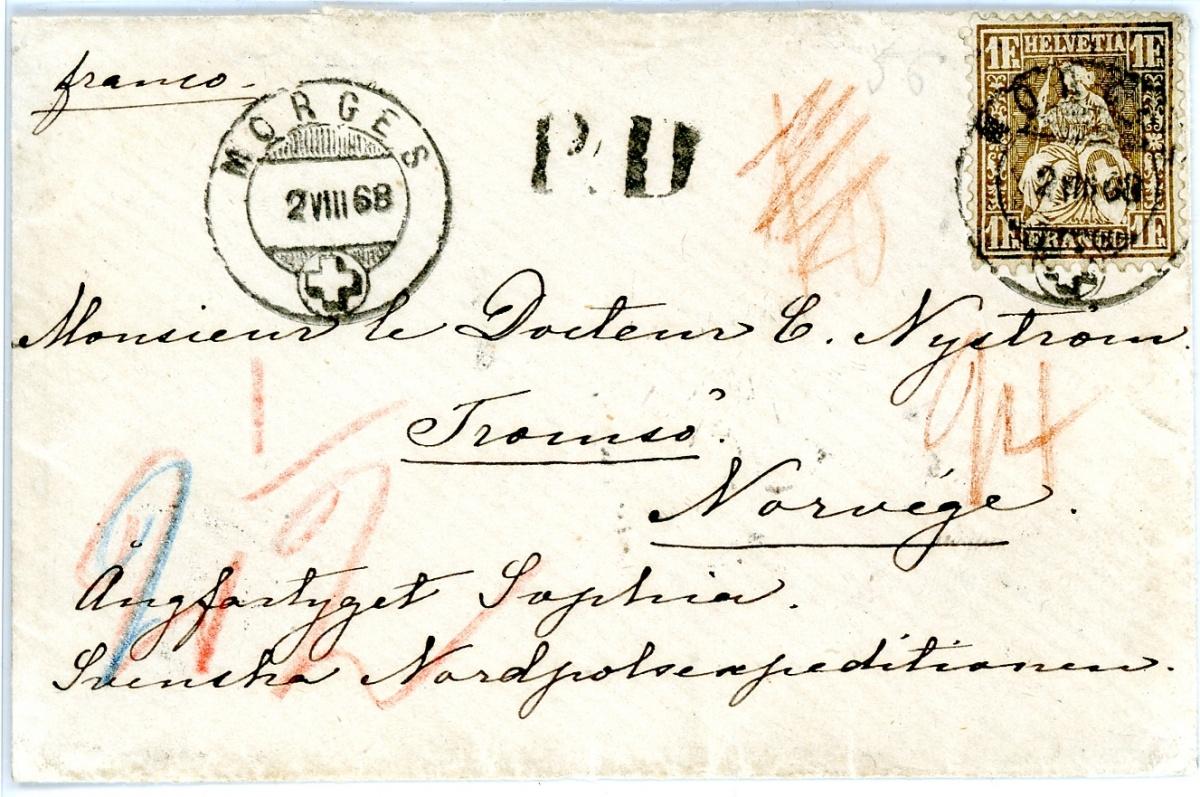 franco
MORGES
2 VIII 68
P.D
56
1F HELVETIA 1F
2 VIII 68
1F FRANCO 1F
Monsieur le Docteur C. Nyström.
Tromsö.
Norvége.
Ångfartyget Sophia.
Svenska Nordpolsexpeditionen.